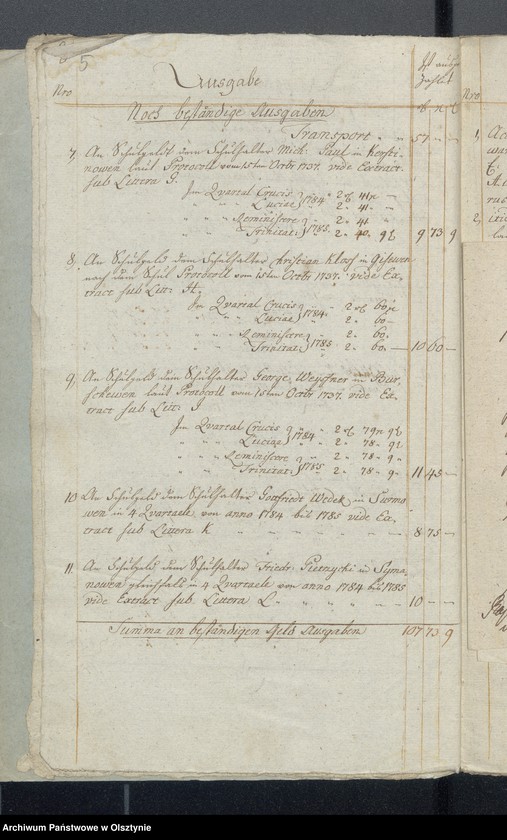 5
Ausgabe
Nro
Ist ausge
zahlet
Noch beständige Ausgaben
Transport " " 57 " —
7, An Schulgeld dem Schulhalter Mich. Paul in Kersti-
nowen laut Protocoll vom 15ten Octbr 1737. vide Extract.
sub Littera G.
Im Quartal Crucis 1784 " 2 rh 41 gr —
" " Luciae " 2 " 41 " —
" " Reminiscere 1785 " 2 " 41 " —
" " Trinitat: " 2 " 40 " 9 9 73 9
8, An Schulgeld dem Schulhalter Christian Klass in Gisewen
nach dem Schul Protocoll vom 15ten Octbr 1737. vide Ex-
tract sub Litt: H.
Im Quartal Crucis 1784 " 2 rh 60 gr
" " Luciae " 2 " 60 —
" " Reminiscere 1785 " 2 " 60 "
" " Trinitat: " 2 " 60 — 10 60 —
9, An Schulgeld dem Schulhalter George Weyssner in Bur-
schewen laut Protocoll vom 15ten Octbr 1737. vide Ex-
tract sub Litt: J
Im Quartal Crucis 1784 " 2 rh 79 gr 9
" " Luciae " 2 " 78 " 9
" " Reminiscere 1785 " 2 " 78 " 9 "
" " Trinitat: " 2 " 78 " 9 " 11 45 —
10 An Schulgeld dem Schulhalter Gottfriedt Wedek in Surmo
wen in 4 Quartale von anno 1784 bis 1785 vide Ex-
tract sub Littera K 8 75 —
11. An Schulgeld dem Schulhalter Friedr. Pietnycki in Syma
nowen gleichfals in 4 Quartale von anno 1784 bis 1785
vide Extract sub Littera L 10 — —
Summa an beständigen Geld Ausgaben 107 73 9
Nro
1,
2,
Archiwum Państwowe w Olsztynie